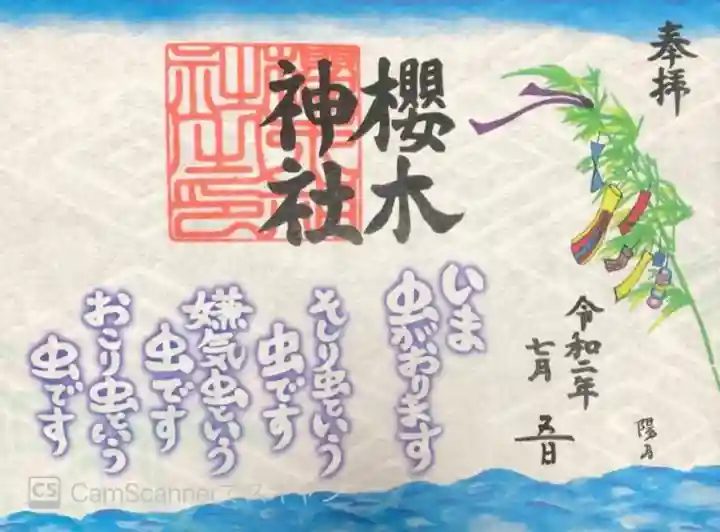 奉拝
櫻木
神社
令和二年
七月 五日
陽月
いま
虫がおります
そしり虫という
虫です
嫌気虫という
虫です
おこり虫という
虫です
CS CamScanner